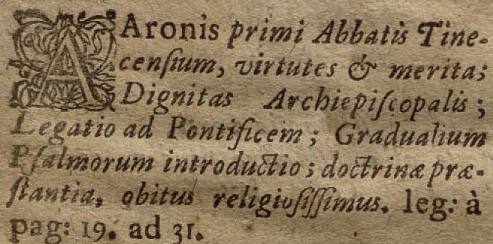 AAronis primi Abbatis Tine-
censium, virtutes & merita;
Dignitas Archiepiscopalis;
Legatio ad Pontificem; Gradualium
Psalmorum introductio; doctrinæ præ-
stantia, obitus religiosissimus. leg: à
pag: 19. ad 31.